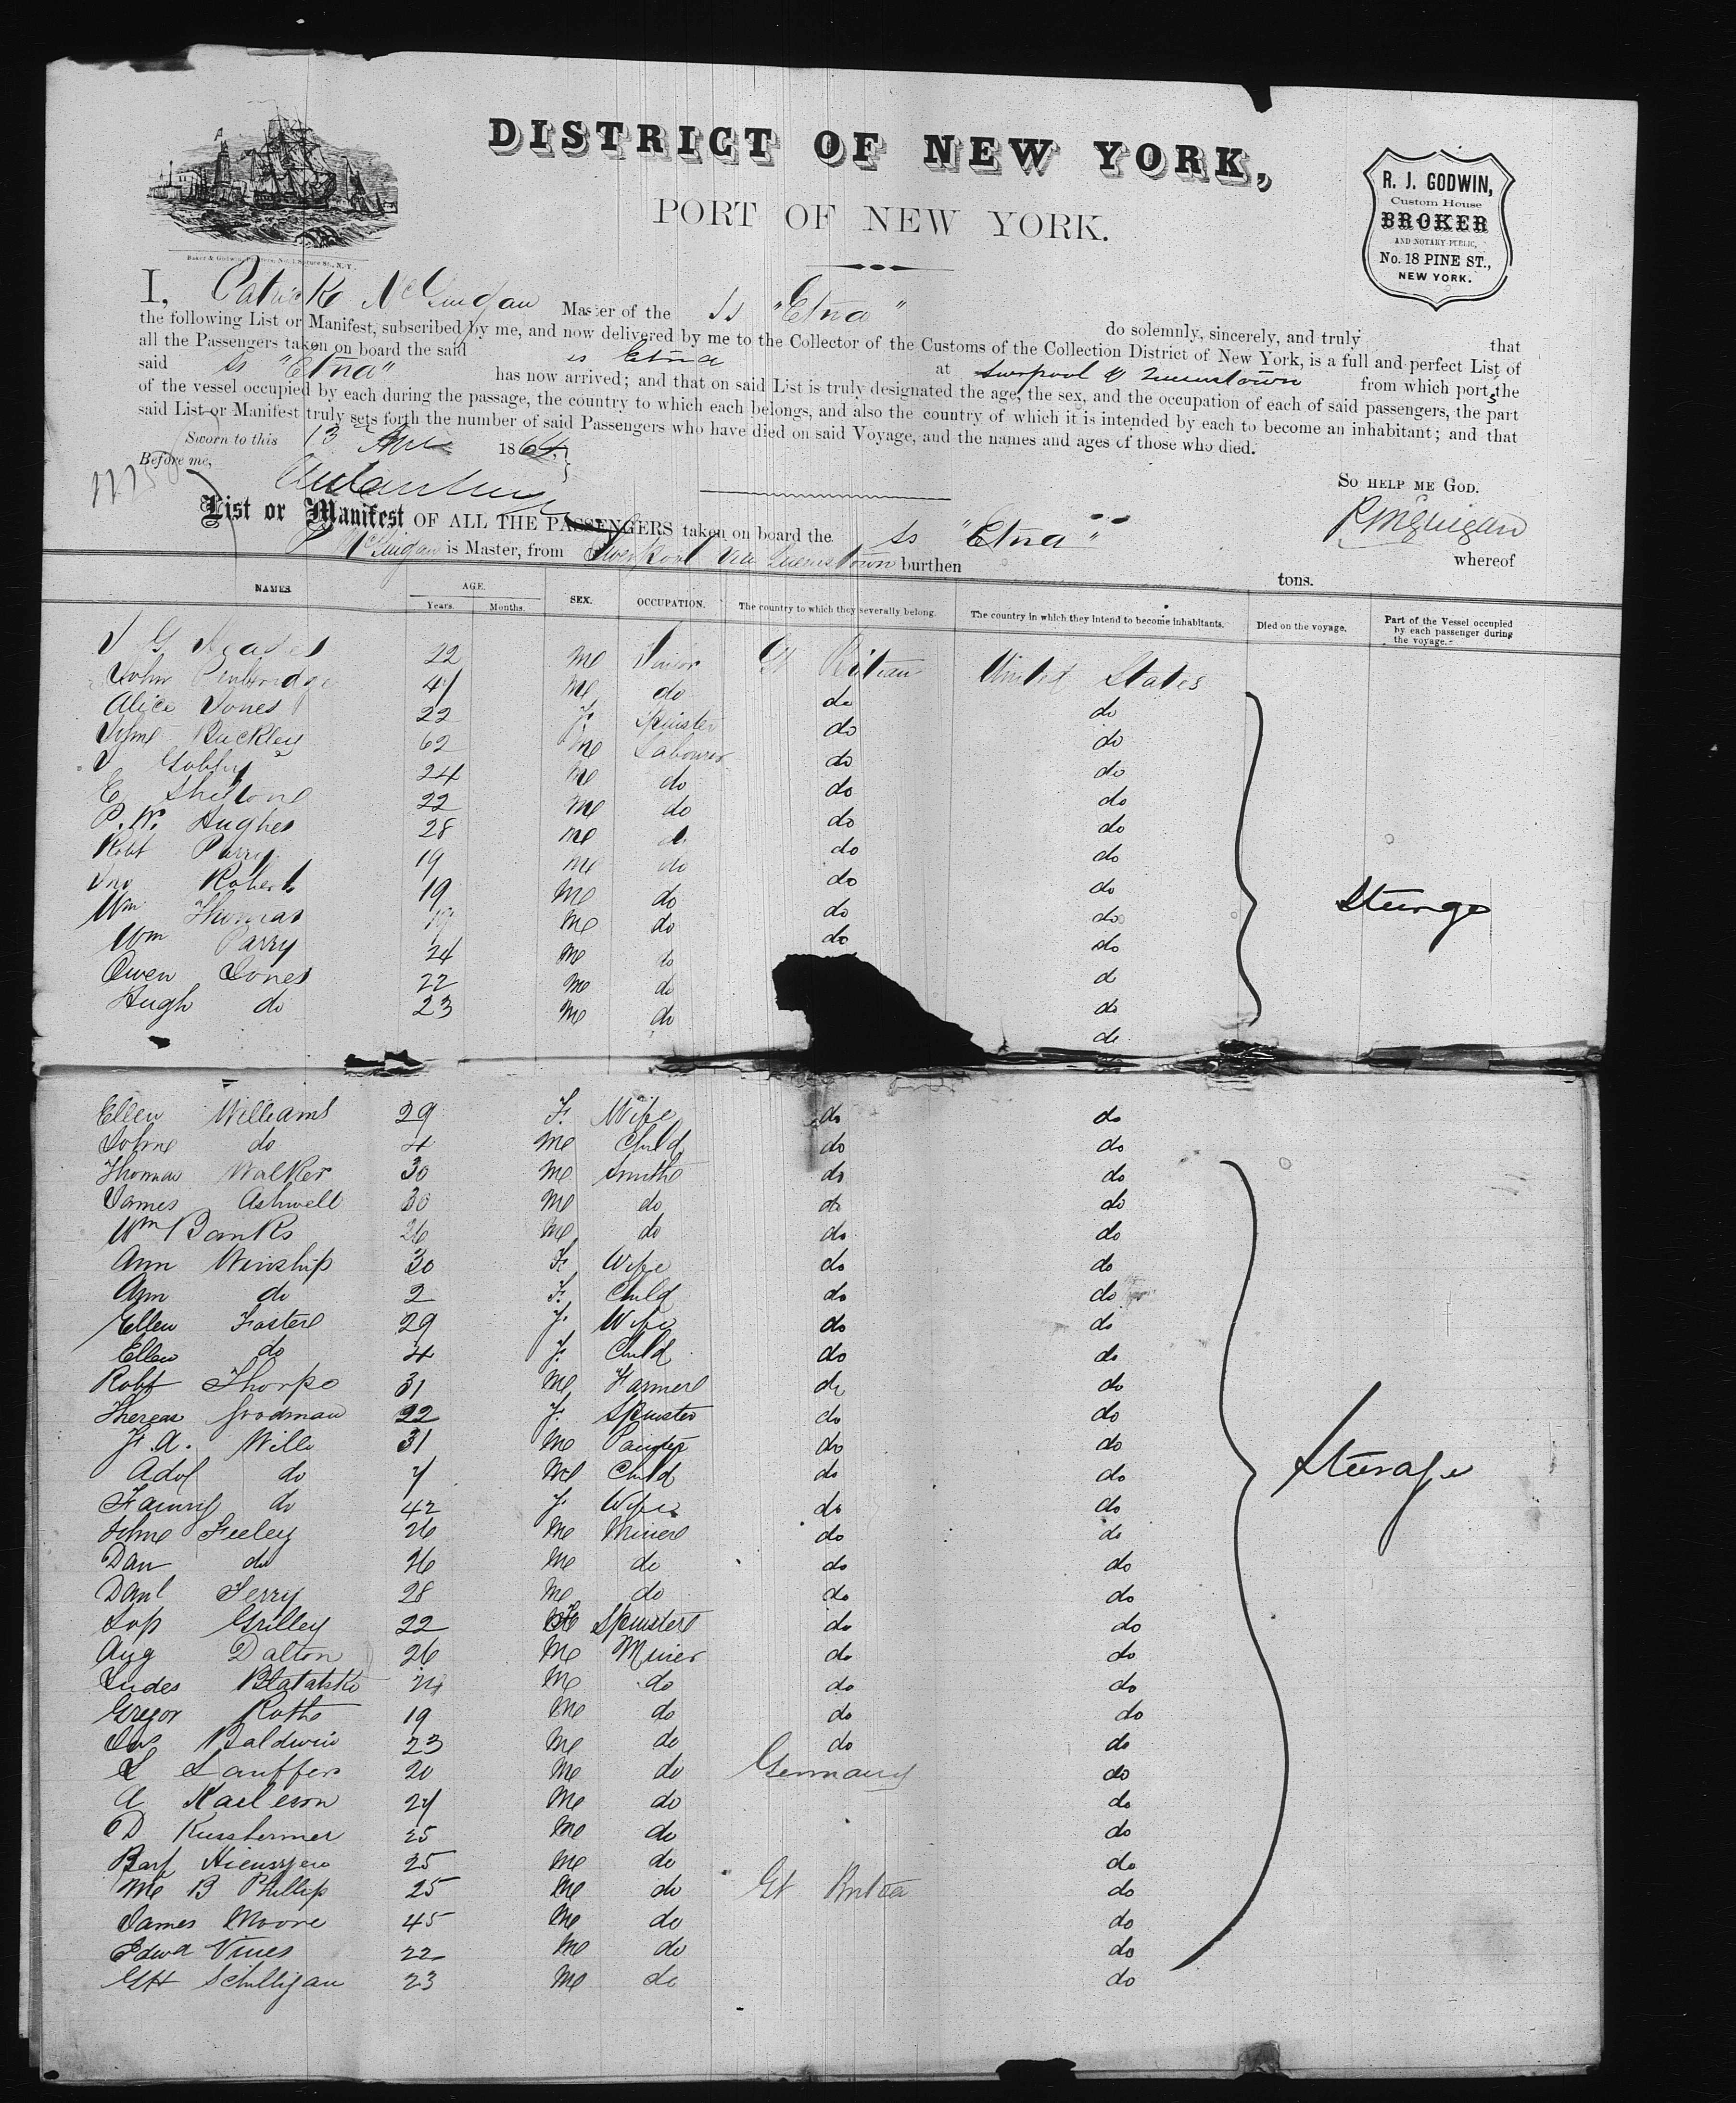 DISTRICT OF NEW YORK,
PORT OF NEW YORK.
R. J. GODWIN,
Custom House
BROKER
AND NOTARY PUBLIC,
No. 18 PINE ST.,
NEW YORK.
Baker & Godwin, Printers, No. 1 Spruce St., N. Y.
I, Patrick McGuigan Master of the Ss "Etna" do solemnly, sincerely, and truly that
the following List or Manifest, subscribed by me, and now delivered by me to the Collector of the Customs of the Collection District of New York, is a full and perfect List of
all the Passengers taken on board the said ss Etna at Liverpool & Queenstown from which ports the
said Ss "Etna" has now arrived; and that on said List is truly designated the age, the sex, and the occupation of each of said passengers, the part
of the vessel occupied by each during the passage, the country to which each belongs, and also the country of which it is intended by each to become an inhabitant; and that
said List or Manifest truly sets forth the number of said Passengers who have died on said Voyage, and the names and ages of those who died.
Sworn to this 13 1864
Before me,
SO HELP ME GOD.
P McGuigan
List or Manifest OF ALL THE PASSENGERS taken on board the Ss "Etna" whereof
P McGuigan is Master, from Liverpool via Queenstown burthen tons.
NAMES. AGE. Years. Months. SEX. OCCUPATION. The country to which they severally belong. The country in which they intend to become inhabitants. Died on the voyage. Part of the Vessel occupied by each passenger during the voyage.
J G 22 Me Gt Britain United States
John 41 Me do do do
Alice Jones 22 F. Spinster do do
Buckley 62 Me Labourer do do
J 24 Me do do do
E 22 Me do do do
P. W. Hughes 28 Me do do
Robt Parry 19 Me do do do
Jno Roberts 19 Me do do do
Wm Thomas Me do do do
Wm Parry 24 Me do do
Owen Jones 22 Me do do
Hugh do 23 Me do do
do
Steerage
Ellen Williams 29 F. Wife do do
Johne do 4 Me Child do do
Thomas Walker 30 Me Smith do do
James Ashwell 30 Me do do do
Wm Banks 26 Me do do do
Ann Winship 30 F Wife do do
Ann do 2 F. Child do do
Ellen Foster 29 F. Wife do do
Ellen do 4 F. Child do do
Robt Thorpe 31 Me Farmer do do
Theresa Goodman 22 F. Spinster do do
F. A. Wills 31 Me Painter do do
Adol do Me Child do do
Fanny do 42 F Wife do do
Feeley 26 Me Miner do do
Dan do 26 Me do do do
Danl Terry 28 Me do do do
Grilley 22 F Spinster do do
Aug Dalton 26 Me Miner do do
Me do do do
Gregor Roth 19 Me do do do
Jas Baldwin 23 Me do do do
L Lauffer 20 Me do Germany do
Me do do
D 25 Me do do
25 Me do do
B Phillip 25 Me do Gt Britain do
James Moore 45 Me do do
Edwd Vines 22 Me do do
G H Schilligan 23 Me do do
Steerage